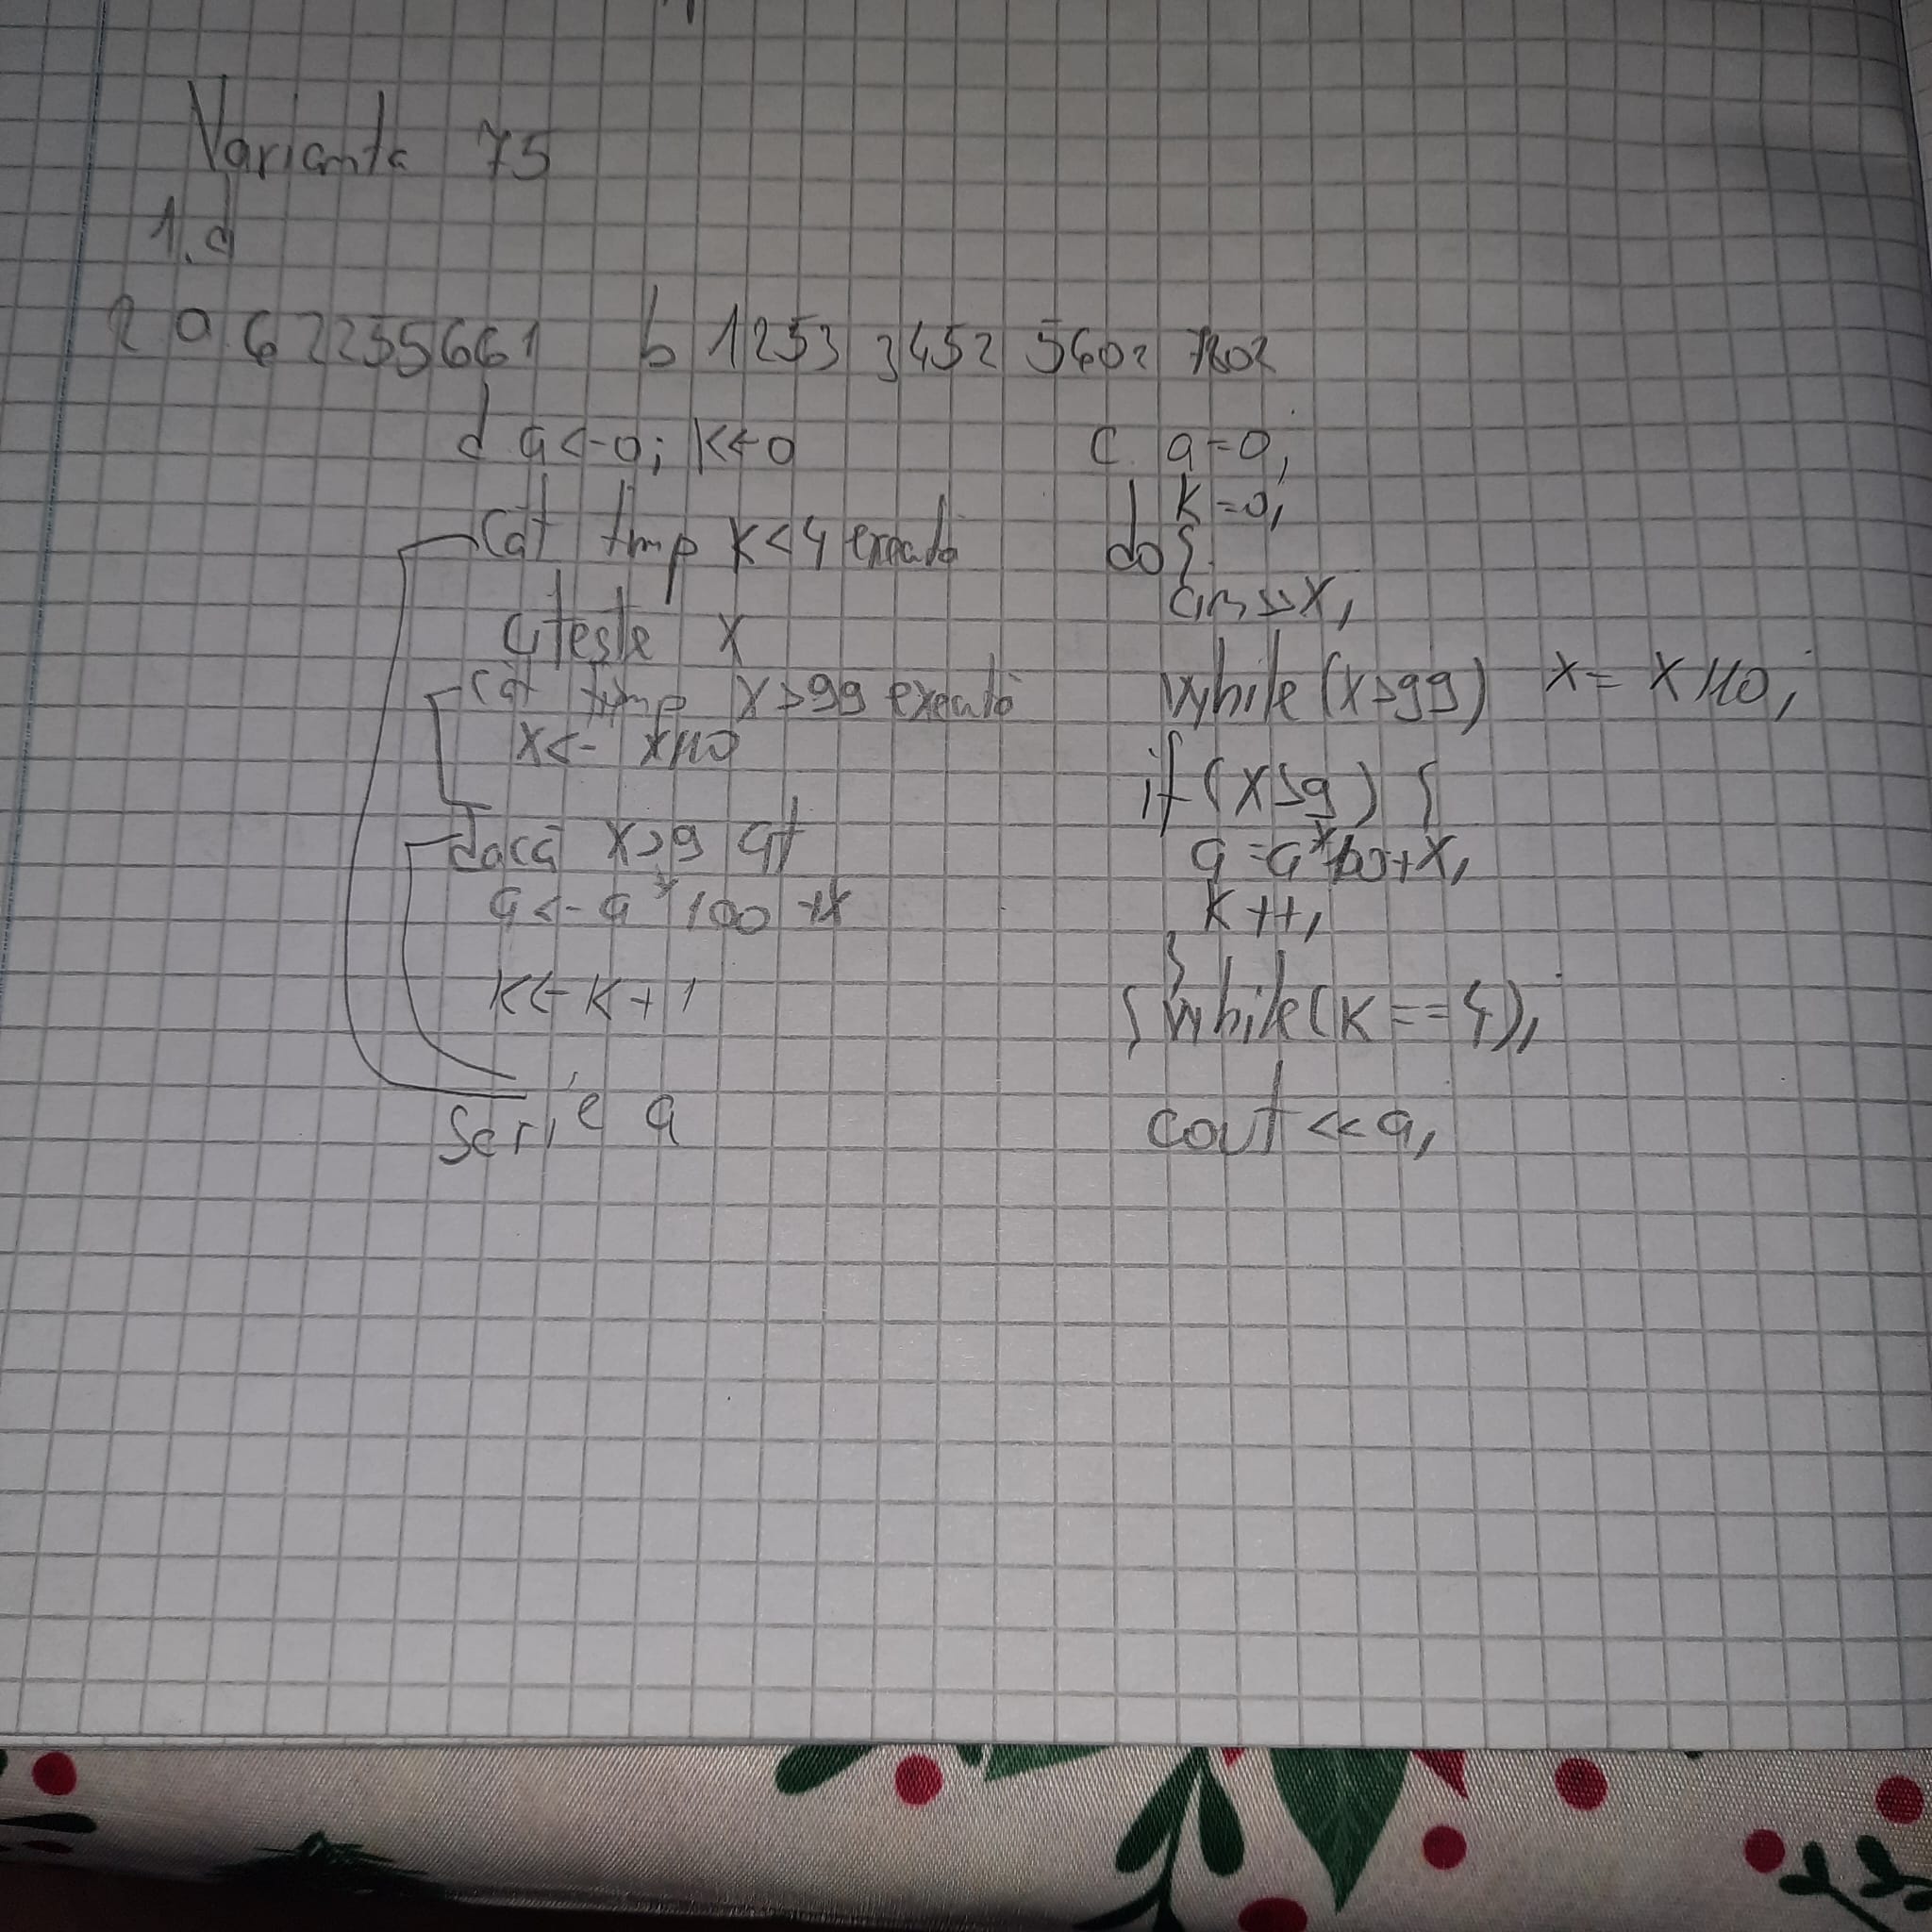 Varianta 75
1.d
2 a. 62255661 b 1253 3452 5602 7802
d a<-0; k<-0
cât timp k<4 execută
citește x
cât timp x>99 execută
x<- x/10
dacă x>9 at
a<-a*100+x
k<-k+1
scrie a
c. a=0;
k=0;
do{
cin>>x;
while(x>99) x=x/10;
if(x>9){
a=a*100+x;
k++;
}
}while(k==4);
cout<<a;